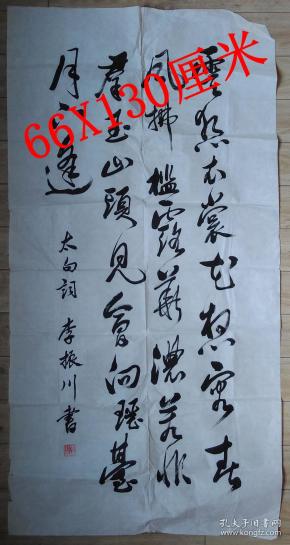 雲想衣裳花想容春
風拂檻露華濃若非
群玉山頭見會向瑶臺
月下逢
太白詞 李振川書
66X130厘米
孔夫子旧书网